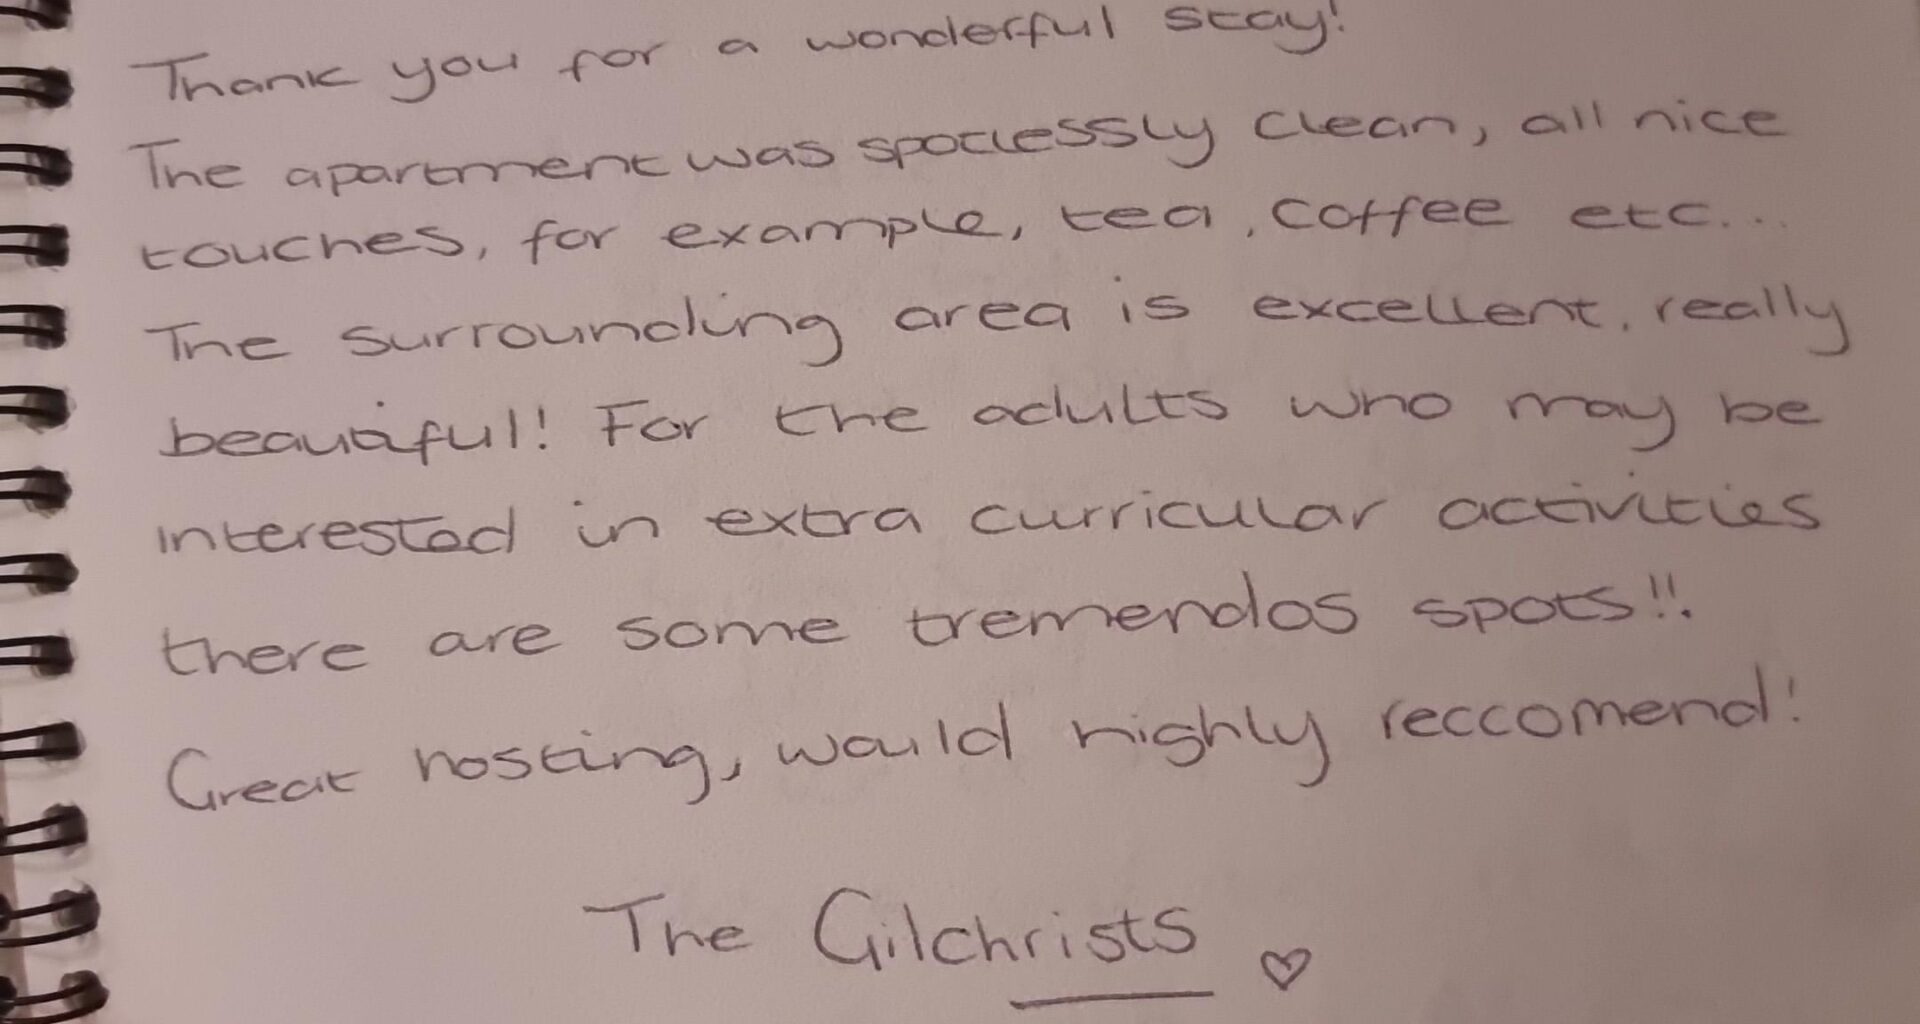 Thank you for a wonderful stay!
The apartment was spotlessly clean, all nice
touches, for example, tea, coffee etc...
The surrounding area is excellent, really
beautiful! For the adults who may be
interested in extra curricular activities
there are some tremendos spots!!.
Great hosting, would highly reccomend!
The Gilchrists ♡